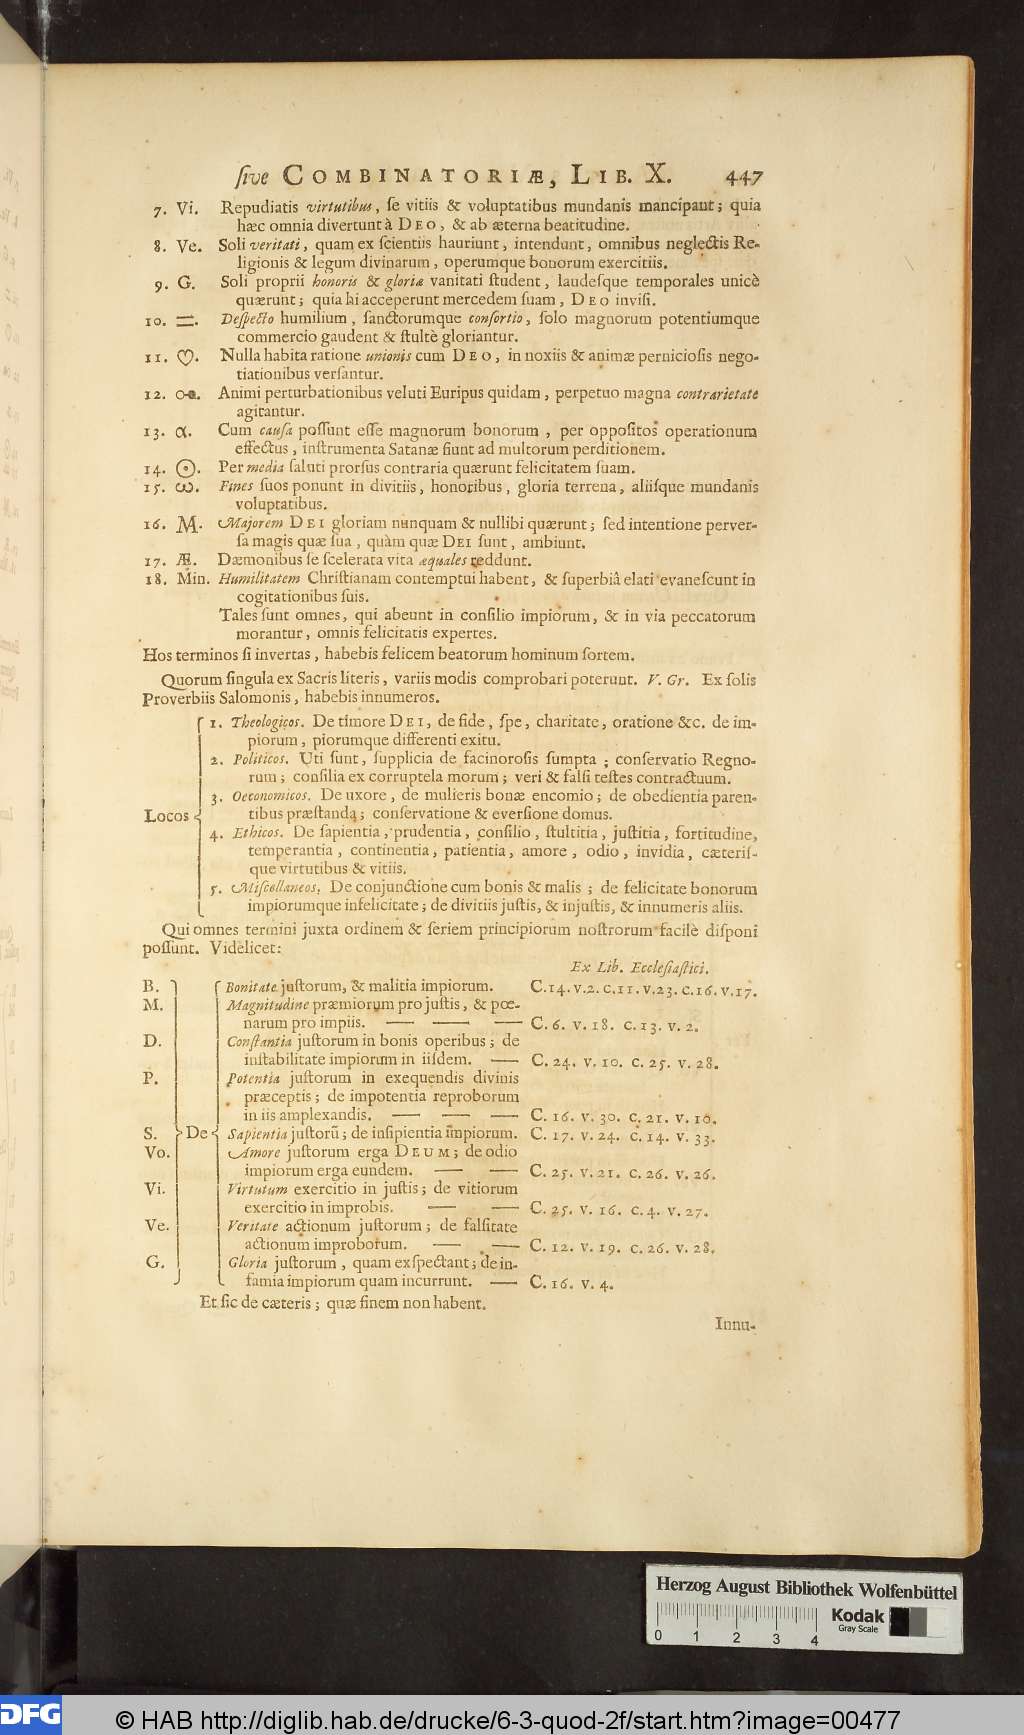 ſive COMBINATORIÆ, LIB. X. 447
7. Vi. Repudiatis virtutibus, ſe vitiis & voluptatibus mundanis mancipant; quia
hæc omnia divertunt à DEO, & ab æterna beatitudine.
8. Ve. Soli veritati, quam ex ſcientiis hauriunt, intendunt, omnibus neglectis Re-
ligionis & legum divinarum, operumque bonorum exercitiis.
9. G. Soli proprii honoris & gloriæ vanitati ſtudent, laudeſque temporales unicè
quærunt; quia hi acceperunt mercedem ſuam, DEO inviſi.
10. =. Deſpecto humilium, ſanctorumque conſortio, ſolo magnorum potentiumque
commercio gaudent & ſtultè gloriantur.
11. ♡. Nulla habita ratione unionis cum DEO, in noxiis & animæ pernicioſis nego-
tiationibus verſantur.
12. Animi perturbationibus veluti Euripus quidam, perpetuo magna contrarietate
agitantur.
13. α. Cum cauſa poſſunt eſſe magnorum bonorum, per oppoſitos operationum
effectus, inſtrumenta Satanæ fiunt ad multorum perditionem.
14. ☉. Per media ſaluti prorſus contraria quærunt felicitatem ſuam.
15. ω. Fines ſuos ponunt in divitiis, honoribus, gloria terrena, aliiſque mundanis
voluptatibus.
16. M. Majorem DEI gloriam nunquam & nullibi quærunt; ſed intentione perver-
ſa magis quæ ſua, quàm quæ DEI ſunt, ambiunt.
17. Æ. Dæmonibus ſe ſcelerata vita æquales reddunt.
18. Min. Humilitatem Chriſtianam contemptui habent, & ſuperbiâ elati evaneſcunt in
cogitationibus ſuis.
Tales ſunt omnes, qui abeunt in conſilio impiorum, & in via peccatorum
morantur, omnis felicitatis expertes.
Hos terminos ſi invertas, habebis felicem beatorum hominum ſortem.
Quorum ſingula ex Sacris literis, variis modis comprobari poterunt. V. Gr. Ex ſolis
Proverbiis Salomonis, habebis innumeros.
1. Theologicos. De timore DEI, de fide, ſpe, charitate, oratione &c. de im-
piorum, piorumque differenti exitu.
2. Politicos. Uti ſunt, ſupplicia de facinoroſis ſumpta; conſervatio Regno-
rum; conſilia ex corruptela morum; veri & falſi teſtes contractuum.
3. Oeconomicos. De uxore, de mulieris bonæ encomio; de obedientia paren-
Locos tibus præſtanda; conſervatione & everſione domus.
4. Ethicos. De ſapientia, prudentia, conſilio, ſtultitia, juſtitia, fortitudine,
temperantia, continentia, patientia, amore, odio, invidia, cæteriſ-
que virtutibus & vitiis.
5. Miſcellaneos. De conjunctione cum bonis & malis; de felicitate bonorum
impiorumque infelicitate; de divitiis juſtis, & injuſtis, & innumeris aliis.
Qui omnes termini juxta ordinem & ſeriem principiorum noſtrorum facilè diſponi
poſſunt. Videlicet:
Ex Lib. Eccleſiaſtici.
B. Bonitate juſtorum, & malitia impiorum. C.14.v.2. c.11.v.23. c.16.v.17.
M. Magnitudine præmiorum pro juſtis, & pœ-
narum pro impiis. — — — C. 6. v. 18. c. 13. v. 2.
D. Conſtantia juſtorum in bonis operibus; de
inſtabilitate impiorum in iiſdem. — C. 24. v. 10. c. 25. v. 28.
P. Potentia juſtorum in exequendis divinis
præceptis; de impotentia reproborum
in iis amplexandis. — — — C. 16. v. 30. c. 21. v. 10.
S. De Sapientia juſtorũ; de inſipientia impiorum. C. 17. v. 24. c. 14. v. 33.
Vo. Amore juſtorum erga DEUM; de odio
impiorum erga eundem. — — C. 25. v. 21. c. 26. v. 26.
Vi. Virtutum exercitio in juſtis; de vitiorum
exercitio in improbis. — — C. 25. v. 16. c. 4. v. 27.
Ve. Veritate actionum juſtorum; de falſitate
actionum improborum. — — C. 12. v. 19. c. 26. v. 28.
G. Gloria juſtorum, quam exſpectant; de in-
famia impiorum quam incurrunt. — C. 16. v. 4.
Et ſic de cæteris; quæ finem non habent.
Innu-
Herzog August Bibliothek Wolfenbüttel
Kodak
Gray Scale
0 1 2 3 4
DFG
© HAB http://diglib.hab.de/drucke/6-3-quod-2f/start.htm?image=00477